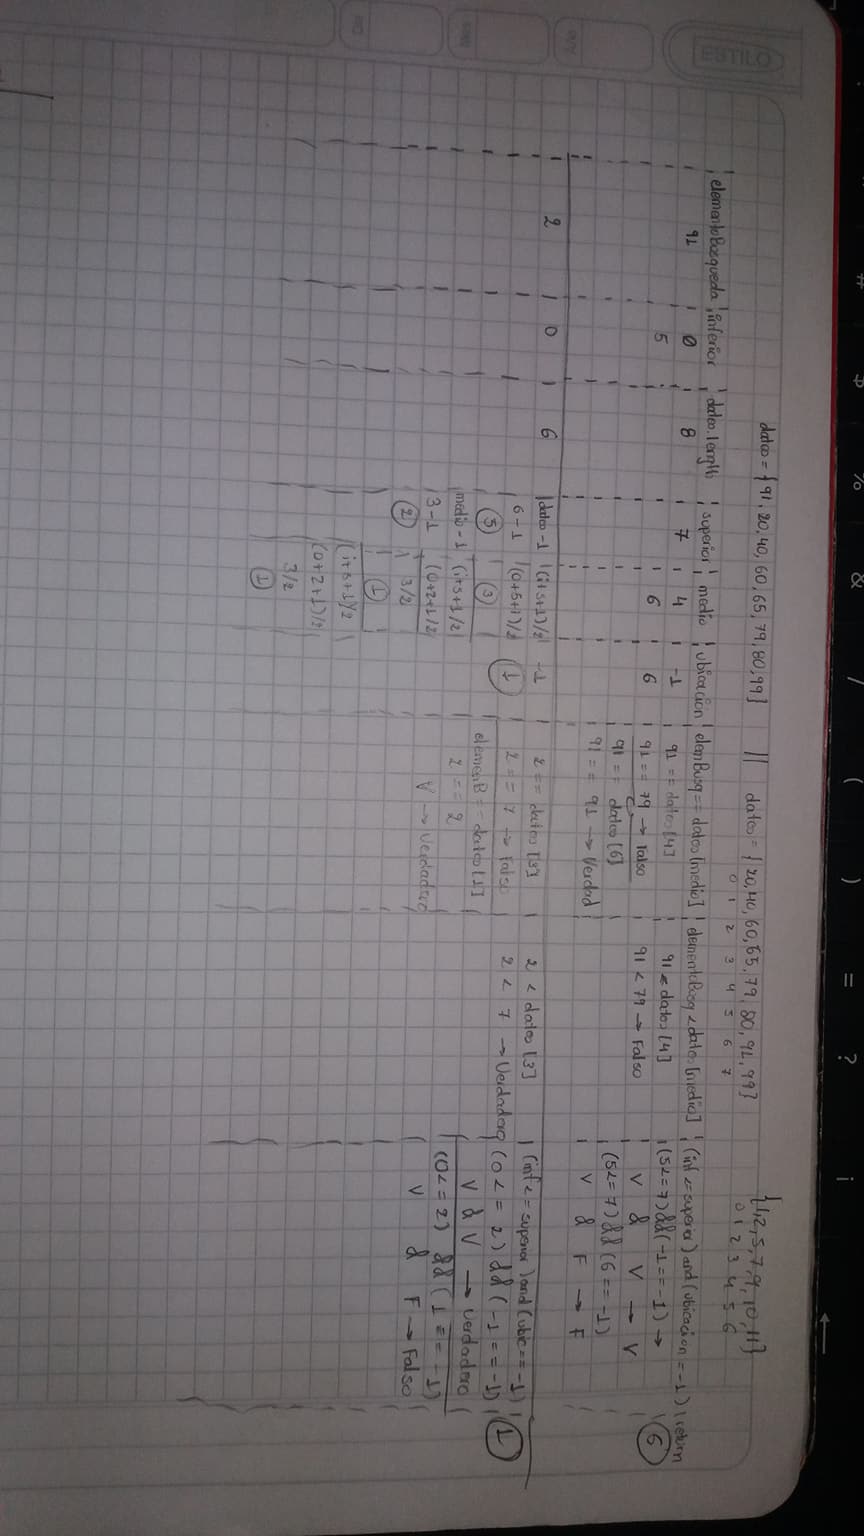 ESTILO
Año
Mes
Día
datos = {91,20,40,60,65,79,80,99} || datos = {20,40,60,65,79,80,91,99}
0 1 2 3 4 5 6 7
{1,2,5,7,9,10,11}
0 1 2 3 4 5 6
elementoBuzqueda | inferior | datos.length | superior | medio | ubicación | elemBusq == datos[medio] | elementoBusq < datos[medio] | (inf <= superior) and (ubicacion = -1) | return
91 | 0 | 8 | 7 | 4 | -1 | 91 == datos[4] | 91 < datos[4] | (5<=7) && (-1 == -1) →
5 | 6 | 6 | 91 == 79 → Falso | 91 < 79 → Falso | V & V → V | 6
91 == datos[6] | (5<=7) && (6 == -1)
91 == 91 → Verdad | V & F → F
2 | 0 | 6 | datos -1 | (i+s+1)/2 | -1 | 2 == datos[3] | 2 < datos[3] | (inf <= superior) and (ubic == -1)
6-1 | (0+5+1)/2 | 1 | 2 == 7 → Falso | 2 < 7 → Verdadero | (0 <= 2) && (-1 == -1) | 1
5 | 3 | elemenB == datos[1] | V & V → Verdadero
medio -1 | (i+s+1/2) | 2 == 2 | (0<=2) && (1 == -1)
3-1 | (0+2+1/2) | V → Verdadero | V & F → Falso
2 | 3/2
1
(i+s+1)/2
(0+2+1)/2
3/2
1
# $ % & / ( ) = ? ¡